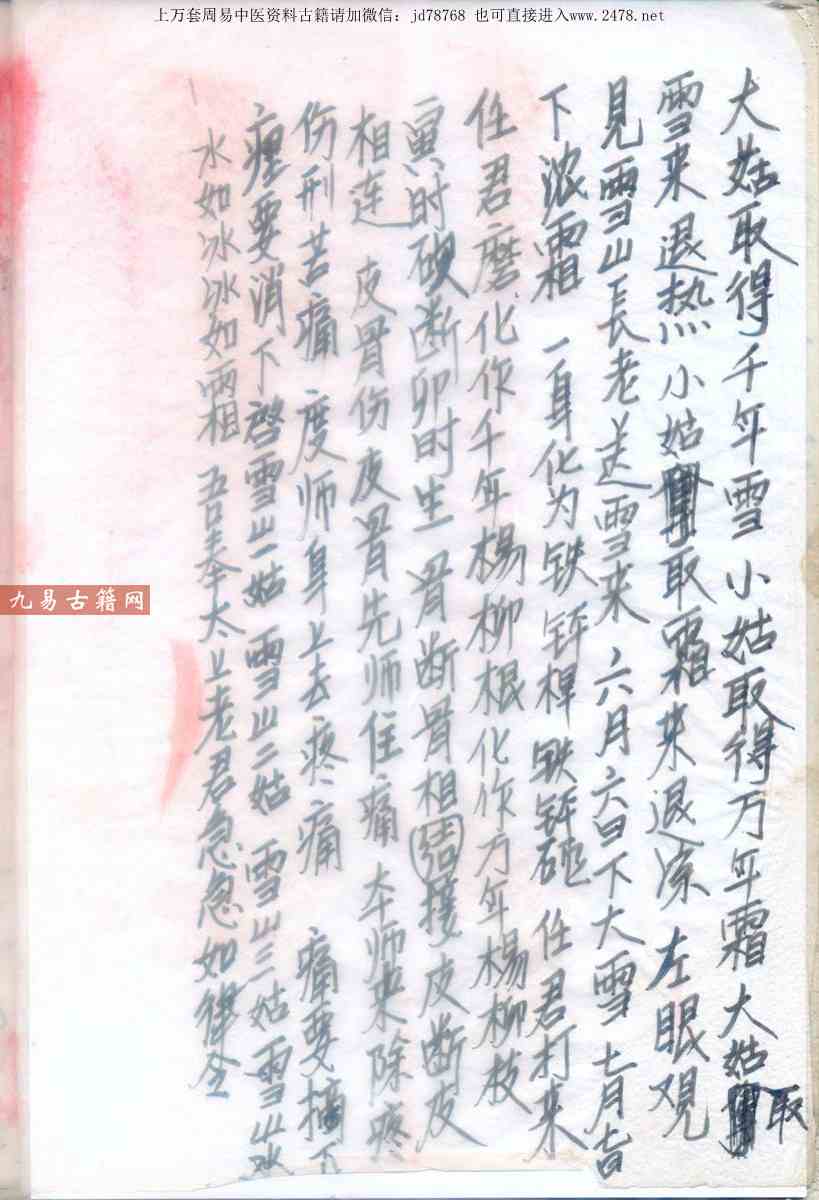 上万套周易中医资料古籍请加微信: jd78768 也可直接进入www.2478.net
大姑取得千年雪 小姑取得万年霜 大姑取
雪来退热 小姑取霜来退凉 左眼观
见雪山長老送雪来 六月六日下大雪 七月七日
下浓霜 一身化为铁 任君打来
任君磨 化作千年楊柳根 化作万年楊柳枝
寅时砍断卯时生 骨断骨相結接 皮断皮
相连 皮骨伤 皮骨先师住痛 本师来除疼
伤刑苦痛 度师身上去疼痛 痛要摘下
要消下 啓雪山一姑 雪山二姑 雪山三姑 雪山水
水如冰冰如霜 吾奉太上老君急急如律令
九易古籍网